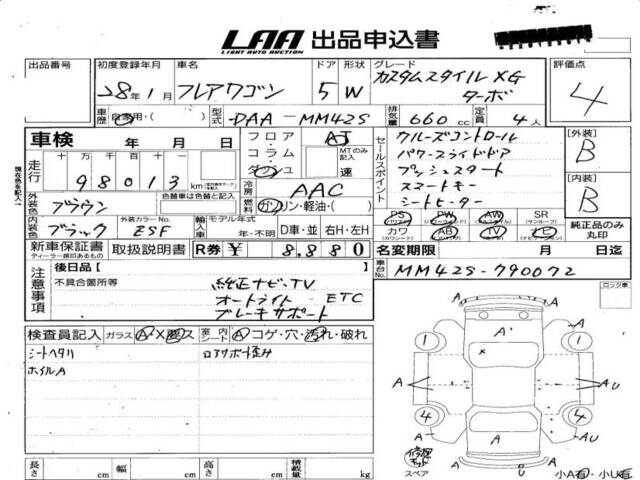 LAA 出品申込書
LIGHT AUTO AUCTION
出品番号 初度登録年月 車名 ドア 形状 グレード 評価点
28年1月 フレアワゴン 5 W カスタムスタイル XG
ターボ 4
車歴 自家用・( ) 型式 DAA-MM42S 排気量 660 cc 定員 4人
車検 年 月 日 フロア・コラム・ダッシュ AT MTのみ記入 速
走行 十 万 千 百 十 一
98013 km
冷房 AAC
燃料 ガソリン・軽油・( )
セールスポイント
クルーズコントロール
パワースライドドア
プッシュスタート
スマートキー
シートヒーター
【外装】 B
【内装】 B
現在色を記入→
外装色 ブラウン 色替車は色替と記入
内装色 ブラック 外装カラーNo. ESF 輸入車 モデル年式 年・不明 D車・並 右H・左H
PS PW AW SR
カワ AB TV ナビ 純正品のみ丸印
新車保証書 取扱説明書 R券 ¥ 8,880 名変期限 月 日迄
ディーラー捺印あるもの
車台No. MM42S-790072
注意事項 後日品【 】
不具合箇所等
純正ナビ・TV
オートライト ETC
ブレーキサポート
ロック車
検査員記入 ガラス A・X・ス 室内シート A コゲ・穴・汚れ・破れ
シートヘタリ ロアサポート歪み
ホイルA
A'
1 A A 1
A A AU
4 A A 4
A A U
A U
修理キット
スペア
小A有・小U有
長さ cm 幅 cm 高さ cm 積載量 kg